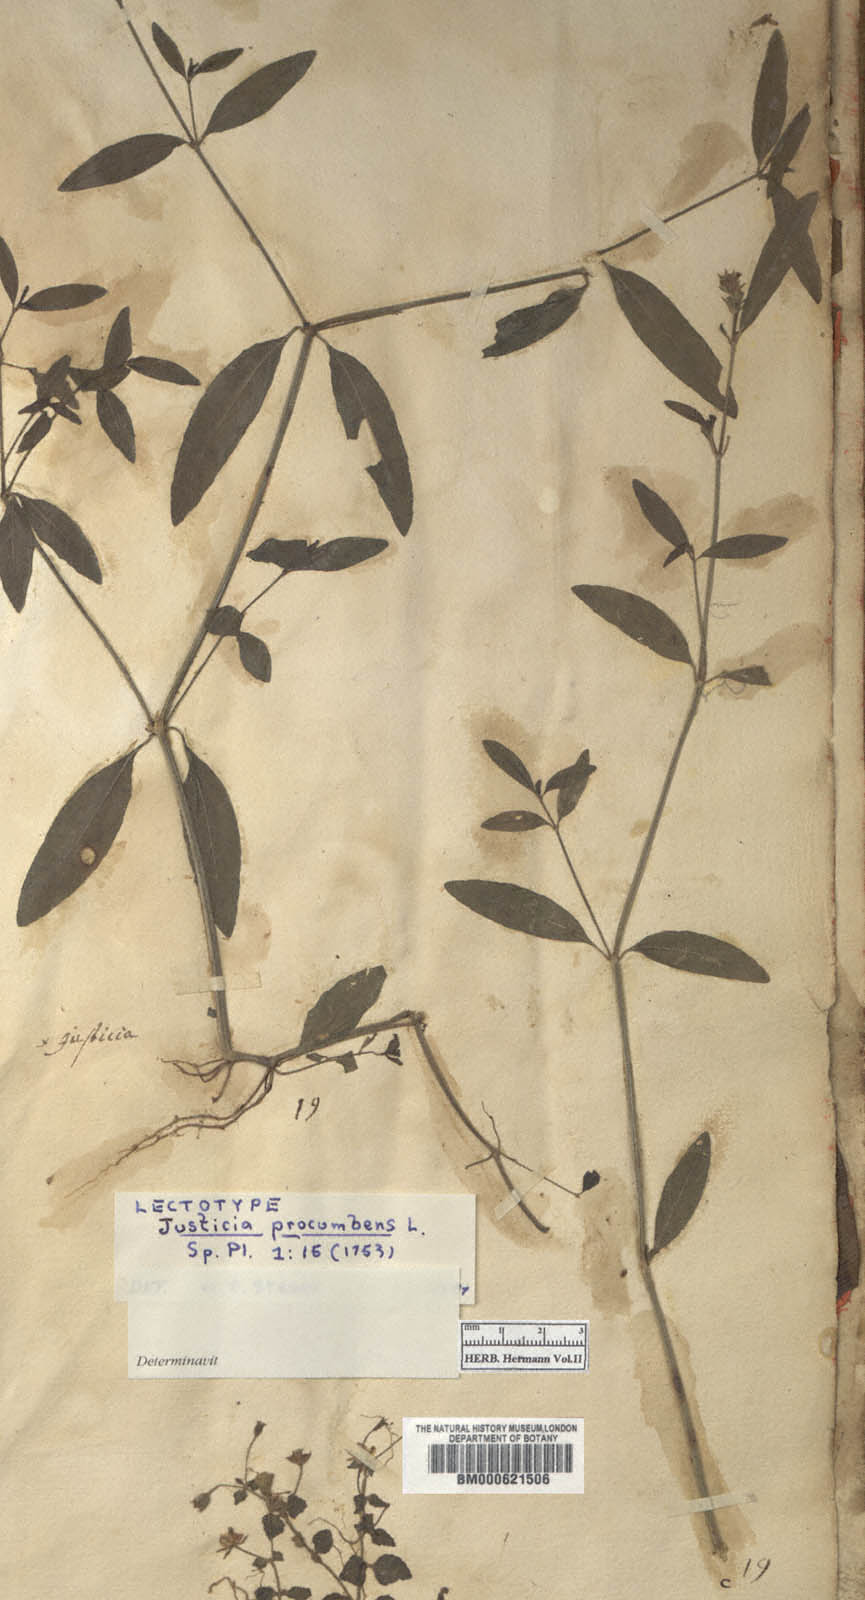 x Justicia
19
LECTOTYPE
Justicia procumbens L.
Sp. Pl. 1:15 (1753)
Determinavit
mm 1 2 3
HERB. Hermann Vol.II
THE NATURAL HISTORY MUSEUM, LONDON
DEPARTMENT OF BOTANY
BM000621506
c 19